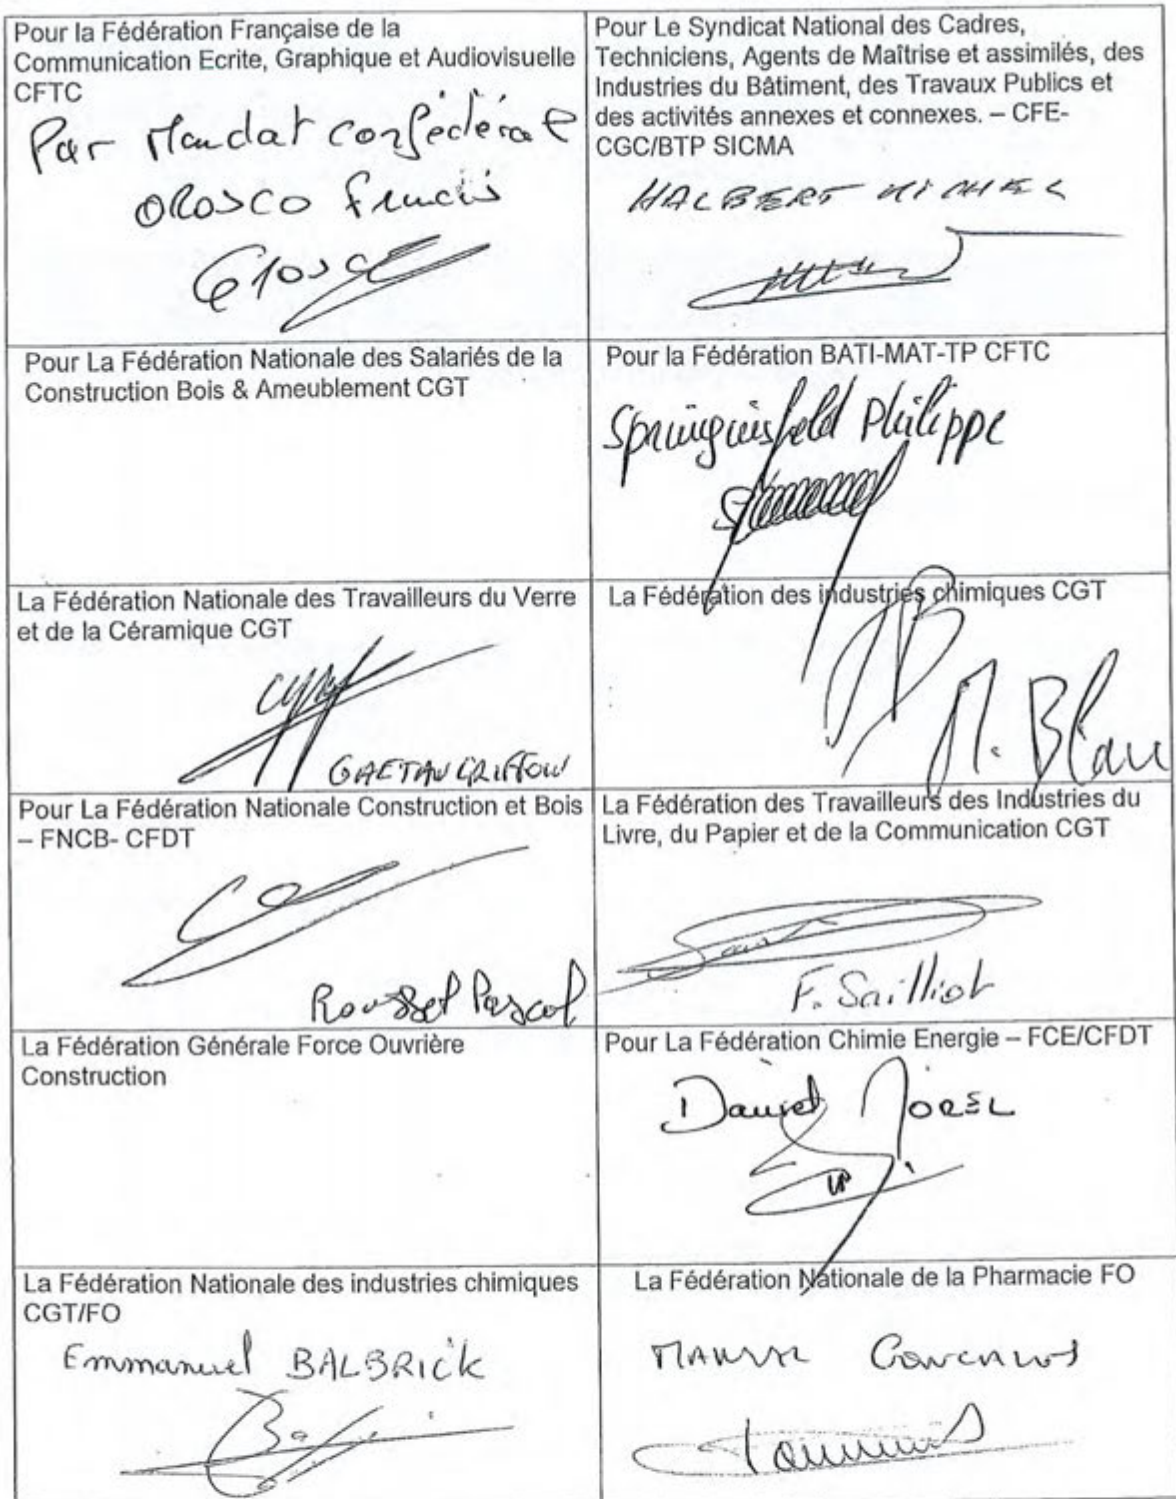 Pour la Fédération Française de la
Communication Ecrite, Graphique et Audiovisuelle
CFTC
Par Mandat confédéral
OROSCO Francis
Pour Le Syndicat National des Cadres,
Techniciens, Agents de Maîtrise et assimilés, des
Industries du Bâtiment, des Travaux Publics et
des activités annexes et connexes. – CFE-
CGC/BTP SICMA
HALBERT MICHEL
Pour La Fédération Nationale des Salariés de la
Construction Bois & Ameublement CGT
Pour la Fédération BATI-MAT-TP CFTC
Springinsfeld Philippe
La Fédération Nationale des Travailleurs du Verre
et de la Céramique CGT
GAETAN GRIFFON
La Fédération des industries chimiques CGT
Pour La Fédération Nationale Construction et Bois
– FNCB- CFDT
Rousset Pascal
La Fédération des Travailleurs des Industries du
Livre, du Papier et de la Communication CGT
F. Sailliot
La Fédération Générale Force Ouvrière
Construction
Pour La Fédération Chimie Energie – FCE/CFDT
Daniel MOREL
La Fédération Nationale des industries chimiques
CGT/FO
Emmanuel BALBRICK
La Fédération Nationale de la Pharmacie FO